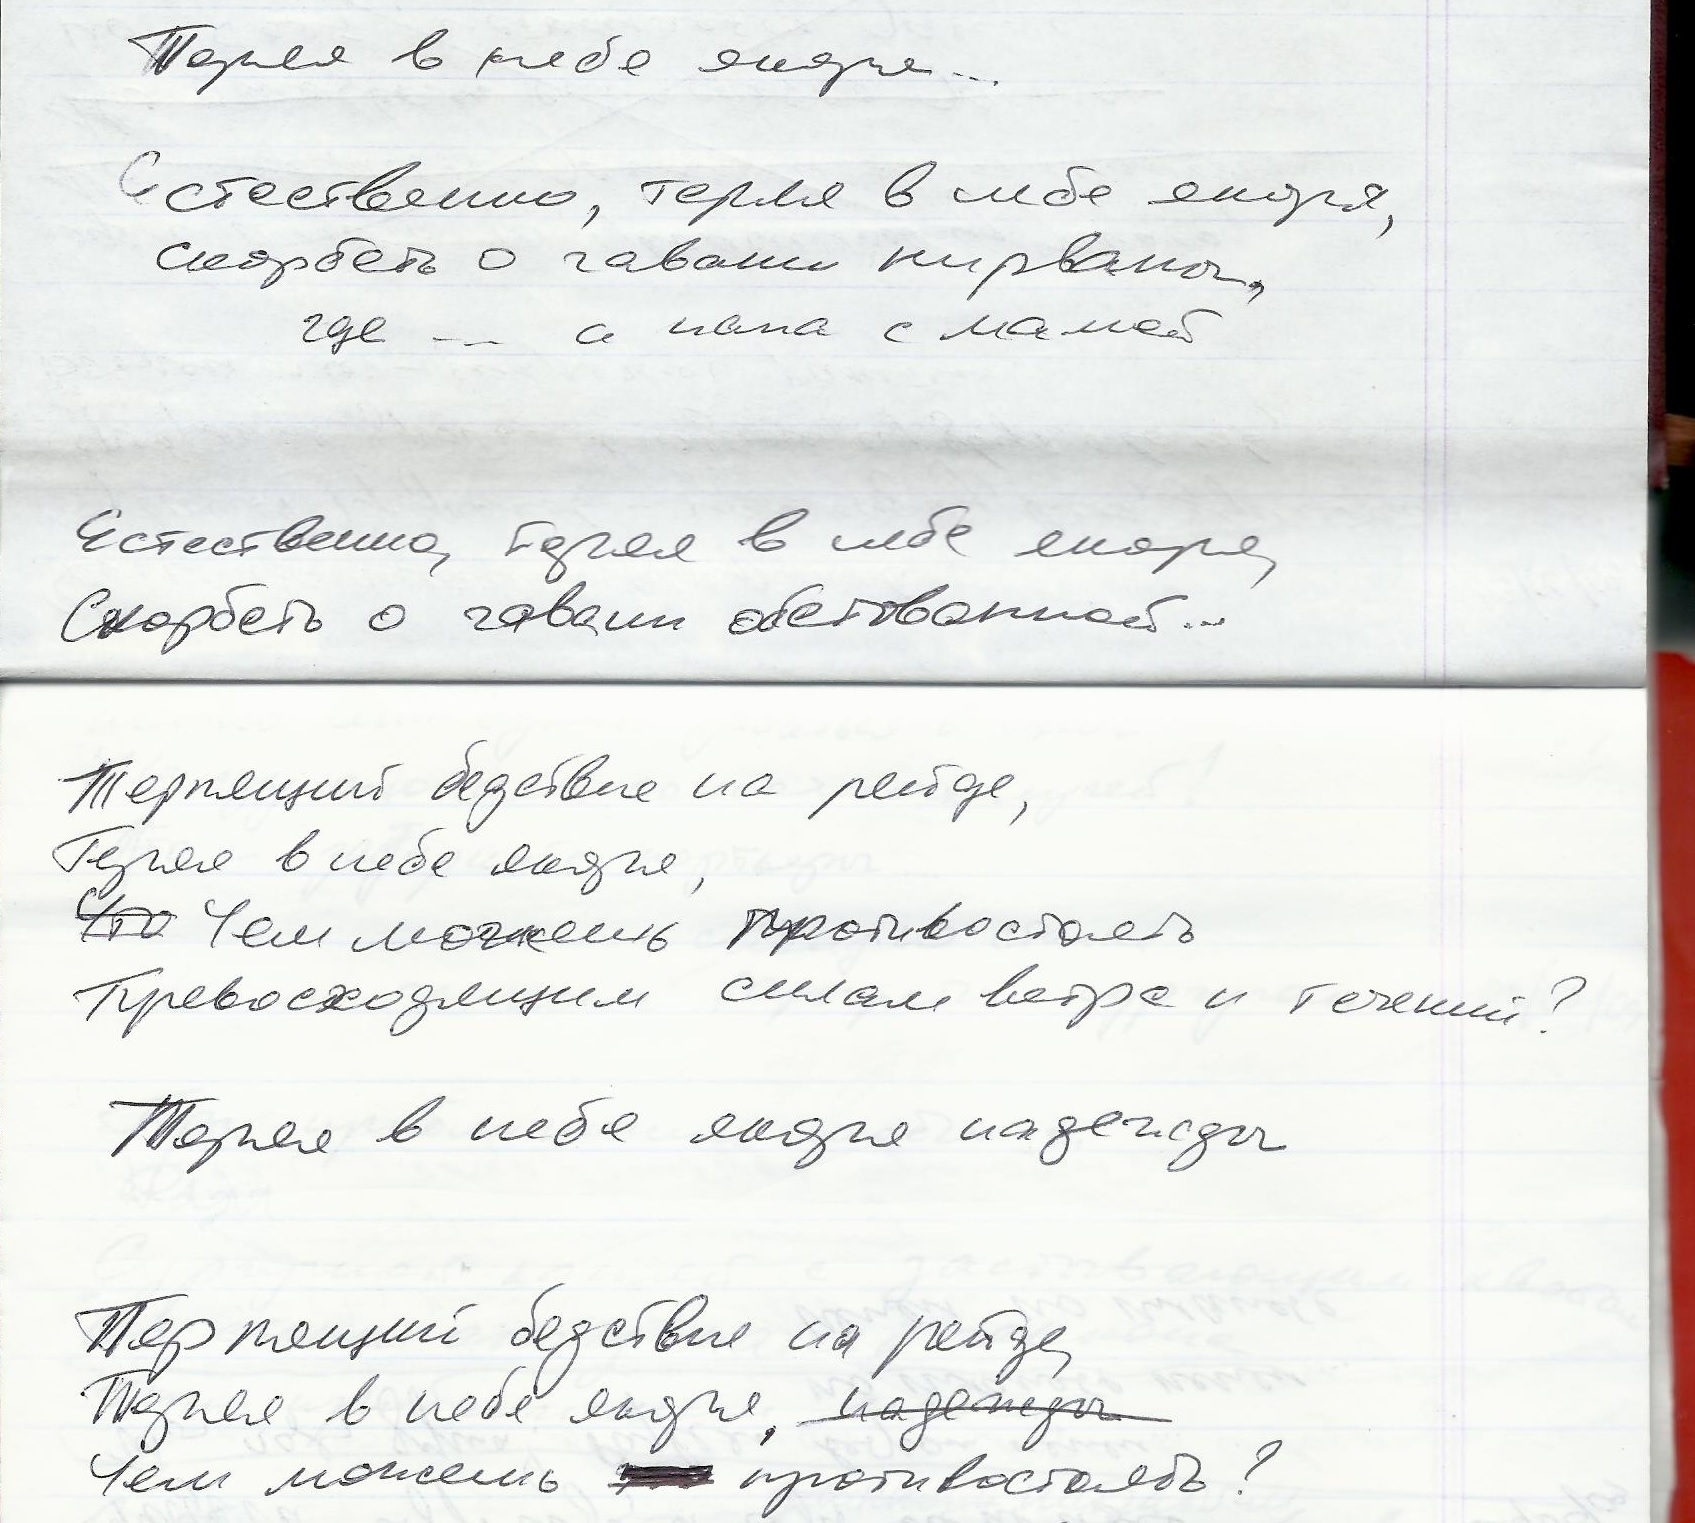 Теряя в небе якоря...
Естественно, теряя в небе якоря,
скорбеть о гавани нирваны,
где ... а папа с мамой
Естественно, теряя в небе якоря,
Скорбеть о гавани обетованной...
Терпящий бедствие на рейде,
Теряя в небе якоря,
Что Чем можешь противостоять
Превосходящим силам ветра и течений?
Теряя в небе якоря надежды
Терпящий бедствие на рейде,
Теряя в небе якоря, надежды
Чем можешь противостоять?